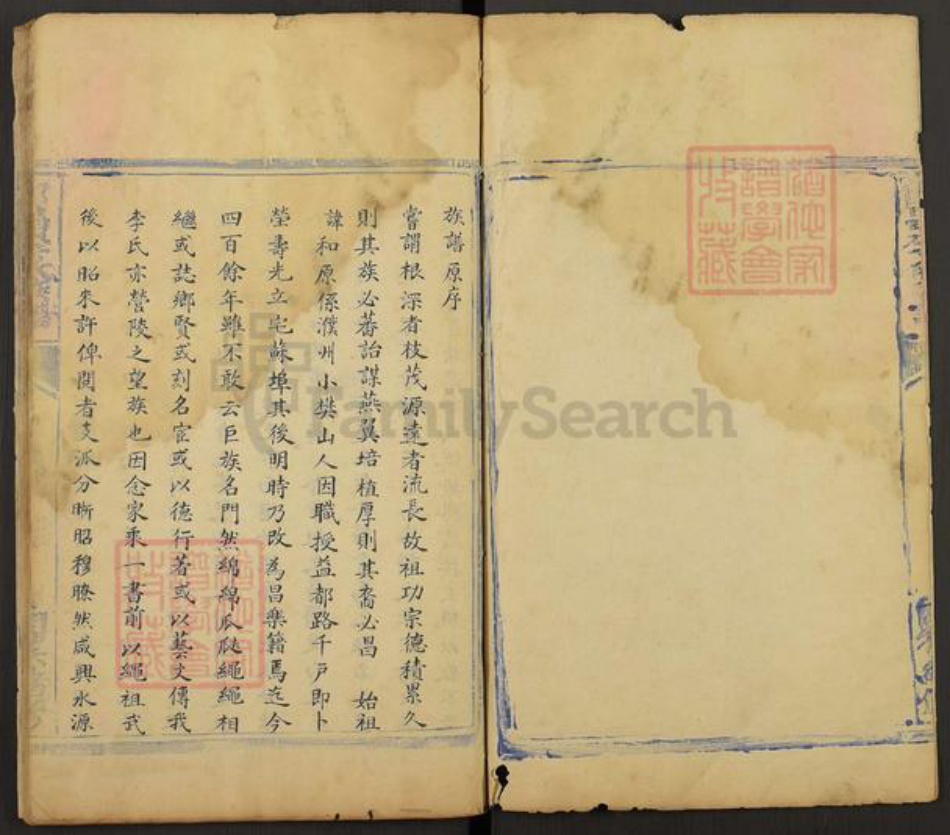 族譜原序
嘗謂根深者枝茂源遠者流長故祖功宗德積累久
則其族必蕃詒謀燕翼培植厚則其裔必昌 始祖
諱和原係濮州小樊山人因職授益都路千戶即卜
塋壽光立宅蘇埠其後明時乃改為昌樂籍焉迄今
四百餘年雖不敢云巨族名門然綿綿瓜瓞繩繩相
繼或誌鄉賢或刻名宦或以德行著或以藝文傳我
李氏亦營陵之望族也因念家乘一書前以繩祖武
後以昭來許俾閱者支派分晰昭穆瞭然咸興水源
譜學會
收藏
譜學會
收藏
FamilySearch